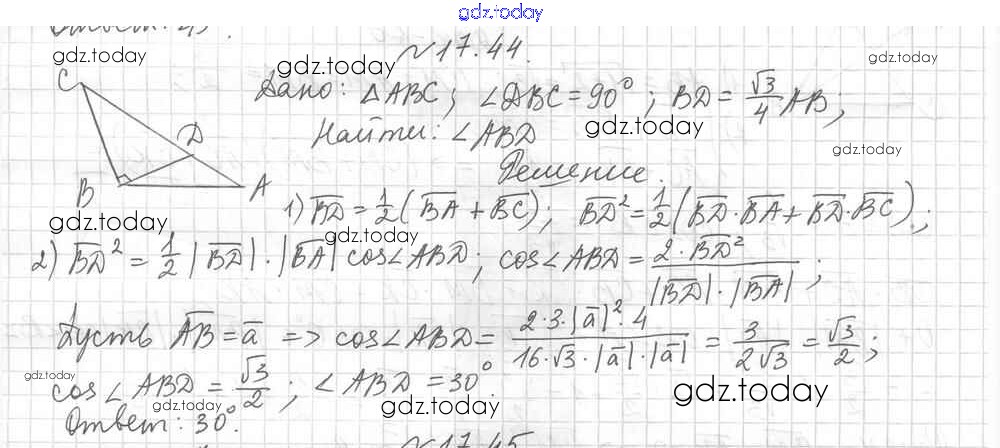 gdz.today
Ответ: 45°.
gdz.today
№17.44.
gdz.today
gdz.today
C
D
B
A
Дано: △ABC; ∠DBC = 90°; BD = √3/4 AB;
gdz.today
Найти: ∠ABD
gdz.today
Решение.
1) B̅D̅ = 1/2 (B̅A̅ + B̅C̅); B̅D̅² = 1/2 (B̅D̅ · B̅A̅ + B̅D̅ · B̅C̅);
gdz.today
gdz.today
2) B̅D̅² = 1/2 |B̅D̅| · |B̅A̅| cos∠ABD; cos∠ABD = 2 · B̅D̅² / |B̅D̅| · |B̅A̅| ;
Пусть A̅B̅ = a̅ => cos∠ABD = 2·3·|a̅|²·4 / 16·√3·|a̅|·|a̅| = 3/2√3 = √3/2 ;
gdz.today
cos∠ABD = √3/2 ; ∠ABD = 30°.
gdz.today
gdz.today
gdz.today
Ответ: 30°.
№17.45